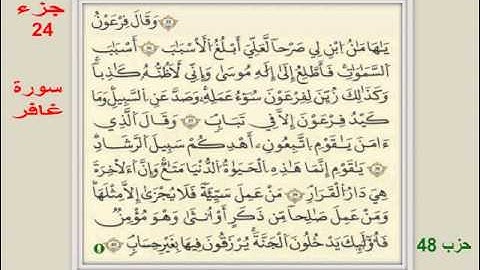 وَقَالَ فِرْعَوْنُ
يَٰهَٰمَٰنُ ابْنِ لِي صَرْحاً لَّعَلِّيَ أَبْلُغُ الْأَسْبَٰبَ أَسْبَٰبَ
السَّمَٰوَٰتِ فَأَطَّلِعُ إِلَىٰ إِلَٰهِ مُوسَىٰ وَإِنِّي لَأَظُنُّهُ كَٰذِباً
وَكَذَٰلِكَ زُيِّنَ لِفِرْعَوْنَ سُوٓءُ عَمَلِهِ وَصَدَّ عَنِ السَّبِيلِ وَمَا
كَيْدُ فِرْعَوْنَ إِلَّا فِي تَبَابٍ وَقَالَ الَّذِي
ءَامَنَ يَٰقَوْمِ اتَّبِعُونِ أَهْدِكُمْ سَبِيلَ الرَّشَادِ
يَٰقَوْمِ إِنَّمَا هَٰذِهِ الْحَيَوٰةُ الدُّنْيَا مَتَٰعٌ وَإِنَّ الْأَخِرَةَ
هِيَ دَارُ الْقَرَارِ مَنْ عَمِلَ سَيِّئَةً فَلَا يُجْزَىٰ إِلَّا مِثْلَهَا
وَمَنْ عَمِلَ صَٰلِحاً مِّن ذَكَرٍ أَوْ أُنثَىٰ وَهُوَ مُؤْمِنٌ
فَأُوْلَٰٓئِكَ يَدْخُلُونَ الْجَنَّةَ يُرْزَقُونَ فِيهَا بِغَيْرِ حِسَابٍ
جزء
24
سورة
غافر
حزب 48